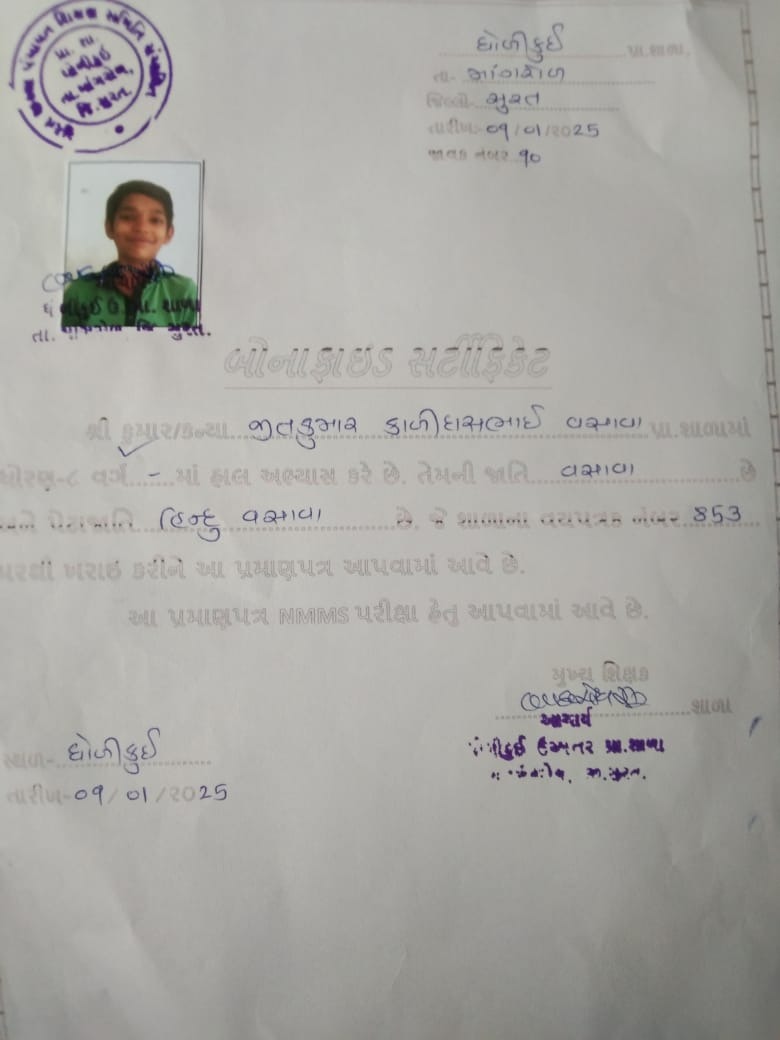 ધોળીકુઈ પ્રા.શાળા,
તા- માંગરોળ
જિલ્લો- સુરત
તારીખ:- 09/01/2025
જાવક નંબર ૧૦
તા. જિ સુરત.
બોનાફાઇડ સર્ટીફિકેટ
શ્રી કુમાર/કન્યા જીતકુમાર કાળીદાસભાઈ વસાવા પ્રા.શાળામાં
ધોરણ-૮ વર્ગ - માં હાલ અભ્યાસ કરે છે. તેમની જાતિ વસાવા છે
અને પેટાજાતિ હિન્દુ વસાવા છે. જે શાળાના વયપત્રક નંબર 853
પરથી ખરાઇ કરીને આ પ્રમાણપત્ર આપવામાં આવે છે.
આ પ્રમાણપત્ર NMMS પરીક્ષા હેતુ આપવામાં આવે છે.
મુખ્ય શિક્ષક
શાળા
આચાર્ય
ધોળીકુઈ ઉચ્ચતર પ્રા.શાળા
સ્થળ- ધોળીકુઈ
તારીખ-09/01/૨૦25